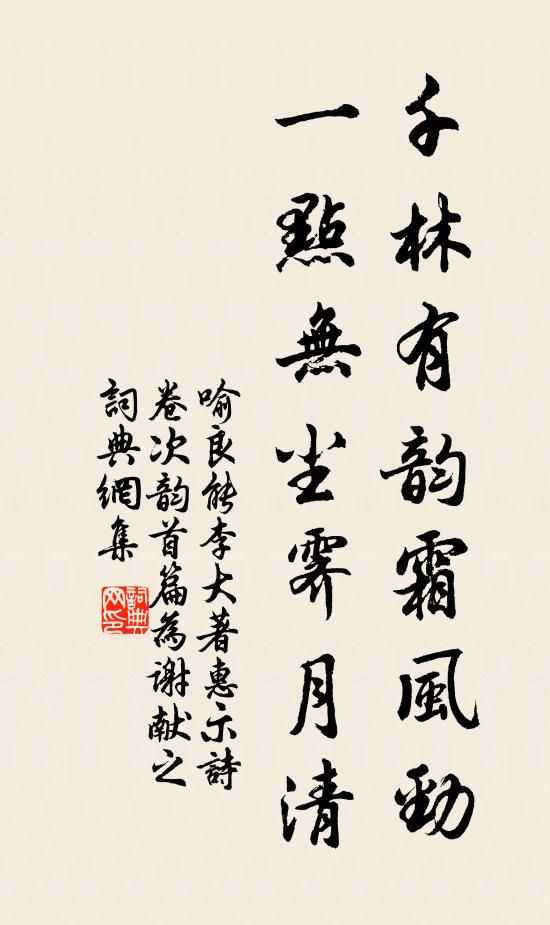 千林有韵霜風勁
一點無尘霽月清
喻良能李大著惠示詩
卷次韵首篇為谢献之
詞典網集
詞典
网印